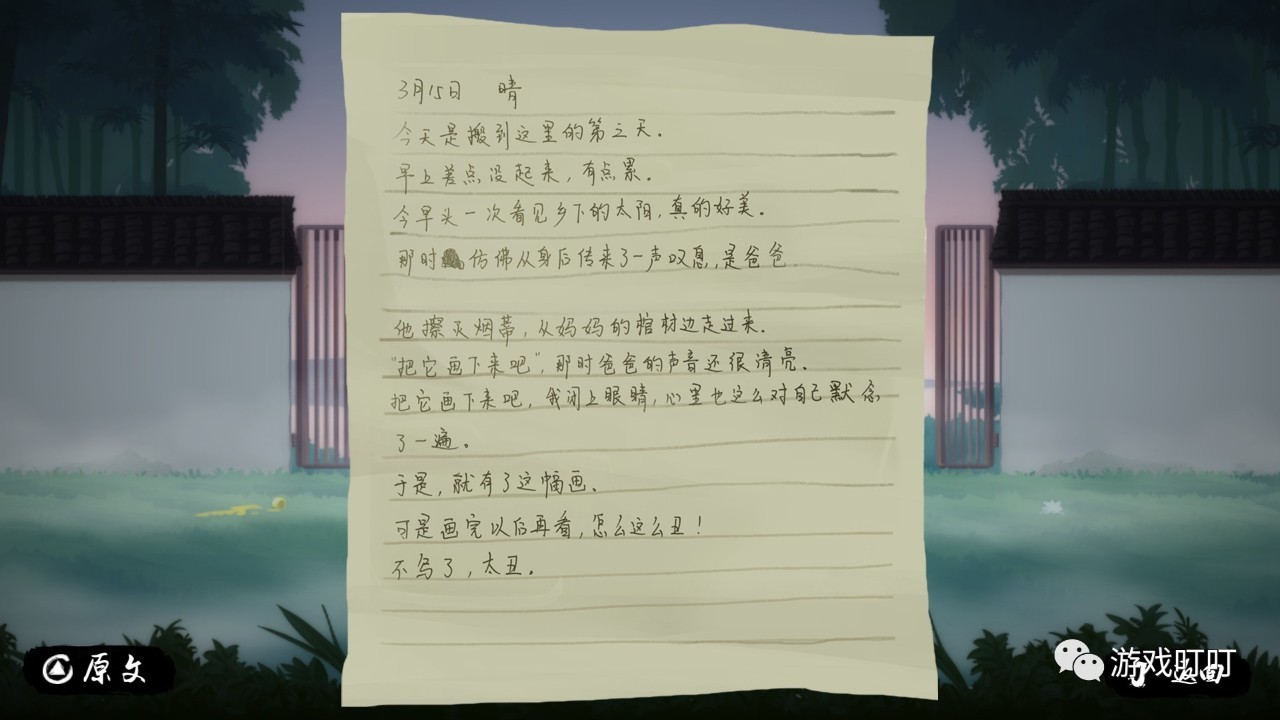 3月15日 晴
今天是搬到这里的第三天。
早上差点没起来，有点累。
今早头一次看见乡下的太阳，真的好美。
那时仿佛从身后传来了一声叹息，是爸爸
他擦灭烟蒂，从妈妈的棺材边走过来。
“把它画下来吧”，那时爸爸的声音还很清亮。
把它画下来吧，我闭上眼睛，心里也这么对自己默念
了一遍。
于是，就有了这幅画。
可是画完以后再看，怎么这么丑！
不写了，太丑。
原文
游戏叮叮
返回